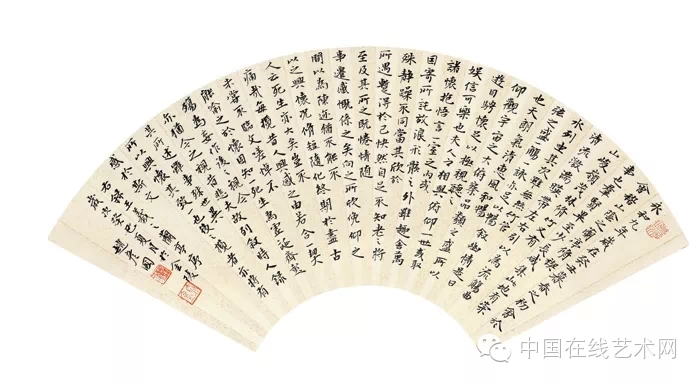 永和九年歲在癸丑暮春之初會於
會稽山陰之蘭亭脩禊
事也羣賢畢至少長咸集此地有崇
山峻領茂林脩竹又有
清流激湍暎帶左右引以為流觴曲
水列坐其次雖無絲竹管弦
之盛一觴一詠亦足以暢敘幽情是日
也天朗氣清惠風和暢
仰觀宇宙之大俯察品類之盛所以
遊目騁懷足以極視聽之
娛信可樂也夫人之相與俯仰一世或取
諸懷抱悟言一室之內或
因寄所託放浪形骸之外雖趣舍萬
殊靜躁不同當其欣於
所遇蹔得於己快然自足不知老之將
至及其所之既惓情隨
事遷感慨係之矣向之所欣俛仰之
間以為陳迹猶不能不
以之興懷況脩短隨化終期於盡古
人云死生亦大矣豈不
痛哉每攬昔人興感之由若合一契
未嘗不臨文嗟悼不
能喻之於懷固知一死生為虛誕齊彭
殤為妄作後之視今
亦猶今之視昔悲夫故列敘時人錄
其所述雖世殊事異
所以興懷其致一也後之攬者亦將有
感於斯文
右錄王羲之蘭亭序
歲次癸巳月於金陵
趙彥國
中国在线艺术网